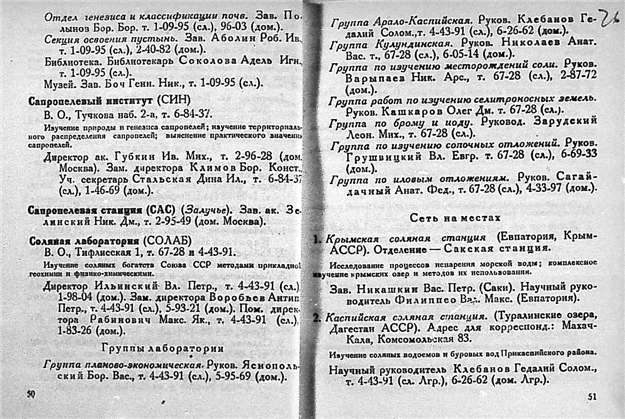 Отдел генезиса и классификации почв. Зав. По-
лынов Бор. Бор. т. 1-09-95 (сл.), 96-03 (дом.).
Секция освоения пустынь. Зав. Аболин Роб. Ив.
т. 1-09-95 (сл.), 2-40-82 (дом.).
Библиотека. Библиотекарь Соколова Адель Игн.
т. 1-09-95 (сл.).
Музей. Зав. Боч Генн. Ник., т. 1-09-95 (сл.).
Сапропелевый институт (СИН)
В. О., Тучкова наб. 2-а, т. 6-84-37.
Изучение природы и генезиса сапропелей; изучение территориаль-
ного распределения сапропелей; выяснение практического значения
сапропелей.
Директор ак. Губкин Ив. Мих., т. 2-96-28 (дом.
Москва). Зам. директора Климов Бор. Конст.
Уч. секретарь Стальская Дина Ил., т. 6-84-37
(сл.), 1-46-69 (дом.).
Сапропелевая станция (САС) (Залучье). Зав. ак. Зе-
линский Ник. Дм., т. 2-95-49 (дом. Москва).
Соляная лаборатория (СОЛАБ)
В. О., Тифлисская 1, т. 67-28 и 4-43-91.
Изучение соляных богатств Союза ССР методами прикладной
геохимии и физико-химическими.
Директор Ильинский Вл. Петр., т. 4-43-91 (сл.)
1-98-04 (дом.). Зам. директора Воробьев Антип
Петр., т. 4-43-91 (сл.), 5-93-21 (дом.). Пом. дирек-
тора Рабинович Макс. Як., т. 4-43-91 (сл.)
1-83-26 (дом.).
Группы лаборатории
Группа планово-экономическая. Руков. Яснополь-
ский Бор. Вас., т. 4-43-91 (сл.), 5-95-69 (дом.).
50
26
Группа Арало-Каспийская. Руков. Клебанов Ге-
далий Солом., т. 4-43-91 (сл.), 6-26-62 (дом.).
Группа Кулундинская. Руков. Николаев Анат.
Вас. т., 67-28 (сл.), 6-05-14 (дом.).
Группа по изучению месторождений соли. Руков.
Варыпаев Ник. Арс., т. 67-28 (сл.), 2-87-72
(дом.).
Группа работ по изучению селитроносных земель.
Руков. Кашкаров Олег Дм. т. 67-28 (сл.).
Группа по брому и иоду. Руковод. Зарудский
Леон. Мих., т. 67-28 (сл.).
Группа по изучению сопочных отложений. Руков.
Грушвицкий Вл. Евгр. т. 67-28 (сл.), 6-69-33
(дом.).
Группа по иловым отложениям. Руков. Сагай-
дачный Анат. Фед., т. 67-28 (сл.), 4-33-97 (дом.).
Сеть на местах
1. Крымская соляная станция (Евпатория, Крым-
АССР). Отделение — Сакская станция.
Исследование процессов испарения морской воды; комплексное
изучение крымских озер и методов их использования.
Зав. Никашкин Вас. Петр. (Саки). Научный руко-
водитель Филиппео Вал. Макс. (Евпатория).
2. Каспийская соляная станция. (Туралинские озера,
Дагестан АССР). Адрес для корреспонд.: Махач-
Кала, Комсомольская 83.
Изучение соляных водоемов и буровых вод Прикаспийского района.
Научный руководитель Клебанов Гедалий Солом.,
т. 4-43-91 (сл. Лгр.), 6-26-62 (дом. Лгр.).
51